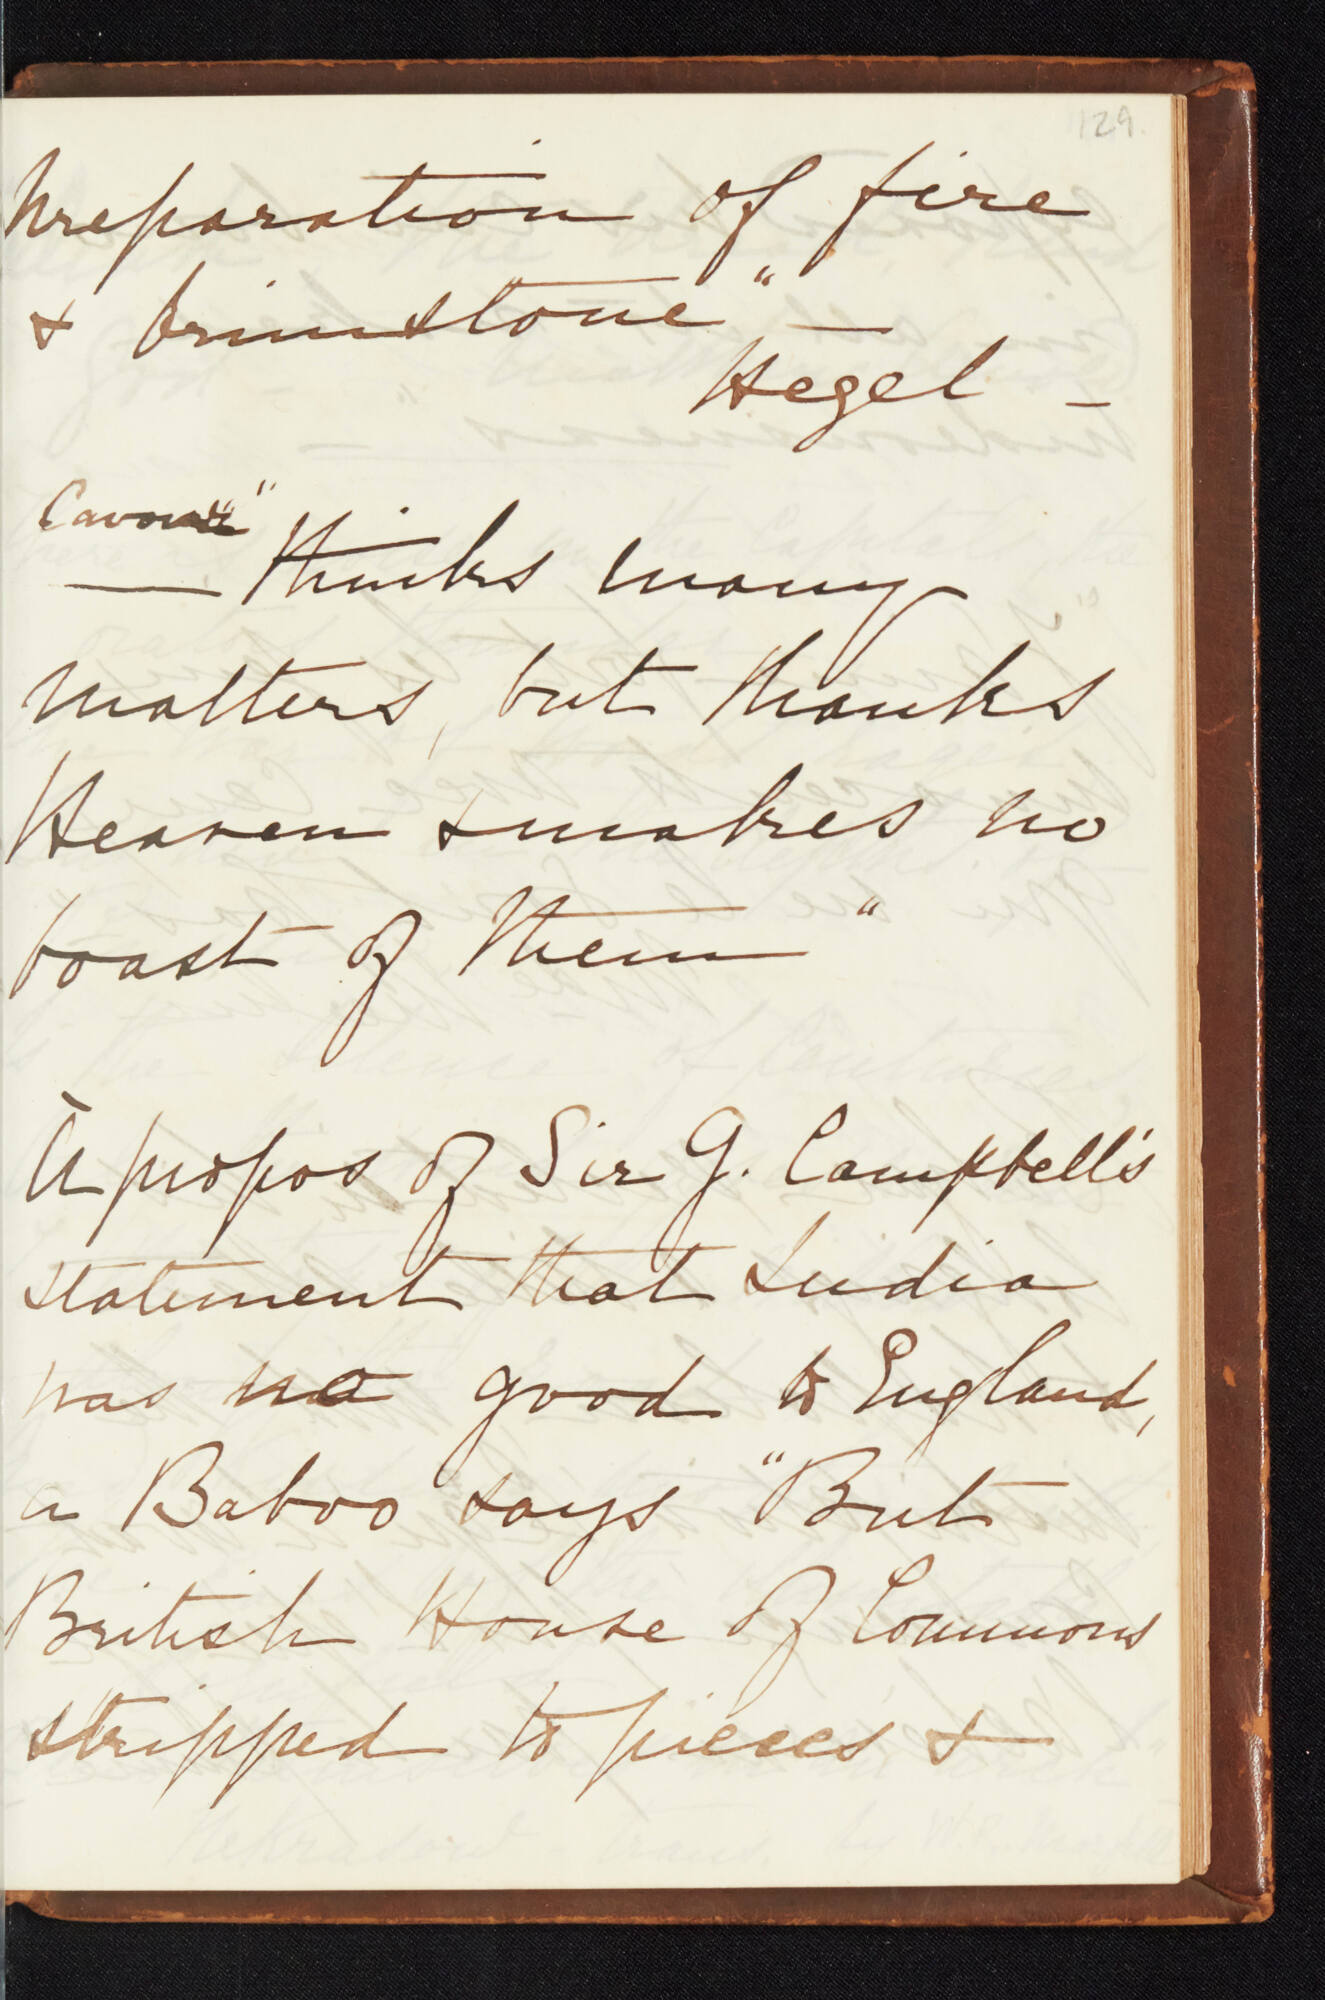 129.
preparation of fire
& brimstone" —
Hegel —
Cavour "
— thinks many
matters, but thanks
Heaven & makes no
boast of them"
À propos of Sir G. Campbell's
statement that India
was no good to England,
a Baboo says "But
British House of Commons
stripped to pieces &